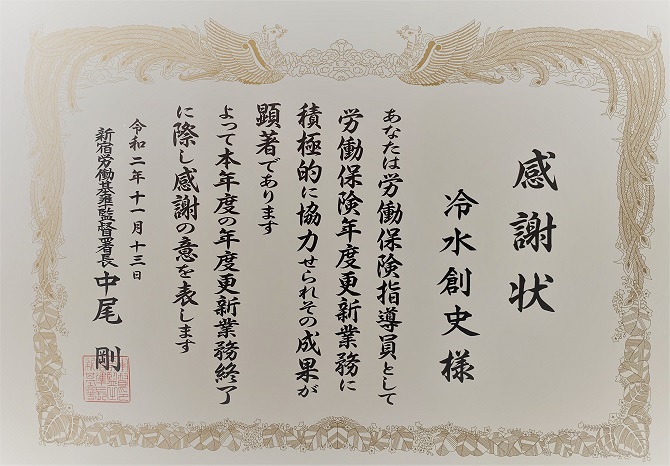 感謝状
冷水創史様
あなたは労働保険指導員として
労働保険年度更新業務に
積極的に協力せられその成果が
顕著であります
よって本年度の年度更新業務終了
に際し感謝の意を表します
令和二年十一月十三日
新宿労働基準監督署長 中尾 剛